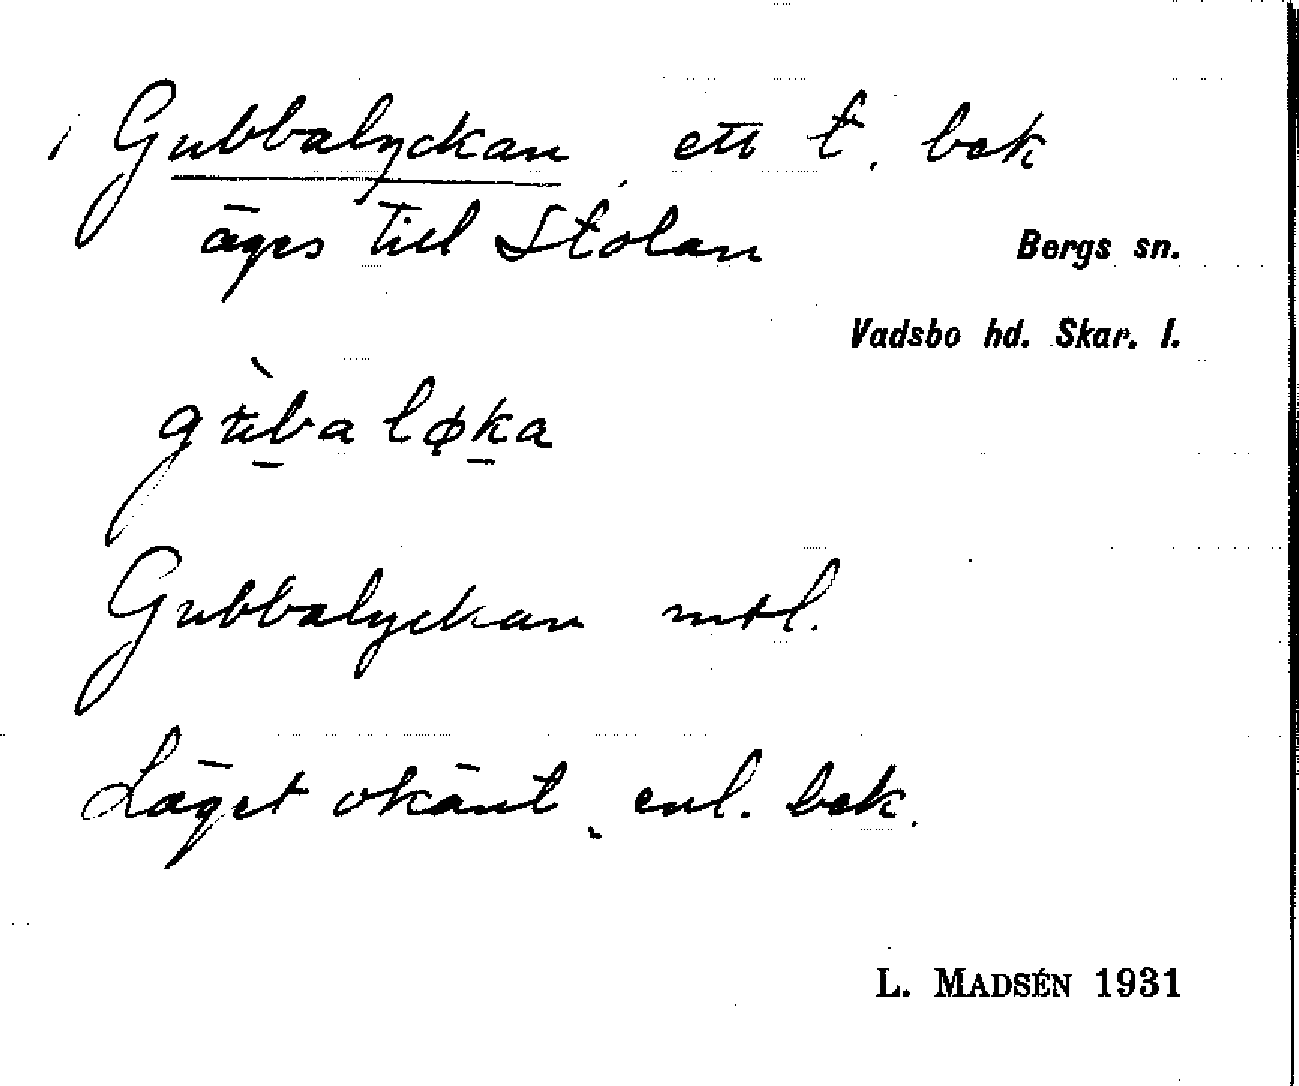 Gubbalyckan, ett t. bek
äges till Stolan
Bergs sn.
Vadsbo hd. Skar. l.
gùbaløka
Gubbalyckan mtl.
Läget okänt, enl. bek.
L. MADSÉN 1931